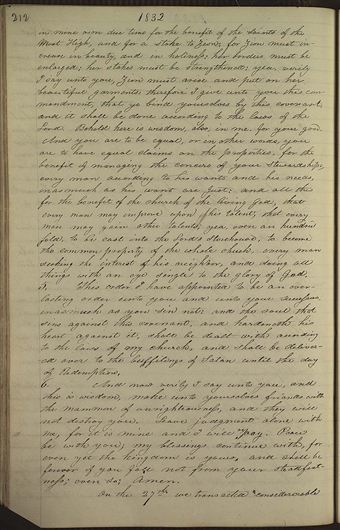 212 1832
in mine own due time for the benefit of the Saints of the
Most High, and for a stake to Zion; for Zion must in-
crease in beauty, and in holiness; her borders must be
enlarged; her stakes must be strengthened; yea, verily
I say unto you, Zion must arise and put on her
beautiful garments; therefore I give unto you this com-
mandment, that ye bind yourselves by this covenant,
and it shall be done according to the laws of the
Lord. Behold here is wisdom, also, in me, for your good.
And you are to be equal, or in other words, you
are to have equal claims on the properties, for the
benefit of managing the concerns of your Stewardships,
every man according to his wants and his needs,
inasmuch as his wants are just: and all this
for the benefit of the church of the living God, that
every man may improve upon his talent, that every
man may gain other talents, yea, even an hundred
fold, to be cast into the Lord's Storehouse, to become
the common property of the whole church, every man
seeking the interest of his neighbor, and doing all
things with an eye single to the glory of God.
5. This order I have appointed to be an ever-
lasting order unto you and unto your successors
inasmuch as you sin not: and the soul that
sins against this covenant, and hardeneth his
heart against it, shall be dealt with according
to the laws of my church, and shall be deliver-
ed over to the buffetings of Satan until the day
of Redemption.
6. And now verily I say unto you, and
this is wisdom, make unto yourselves friends with
the mammon of unrighteousness, and they will
not destroy you. Leave judgment alone with
me, for it is mine and I will repay. Peace
be with you; my blessings continue with, for
even yet the kingdom is yours, and shall be
forever if you fall not from your steadfast-
ness; even so; Amen.
On the 27<sup>th</sup> we transacted considerable